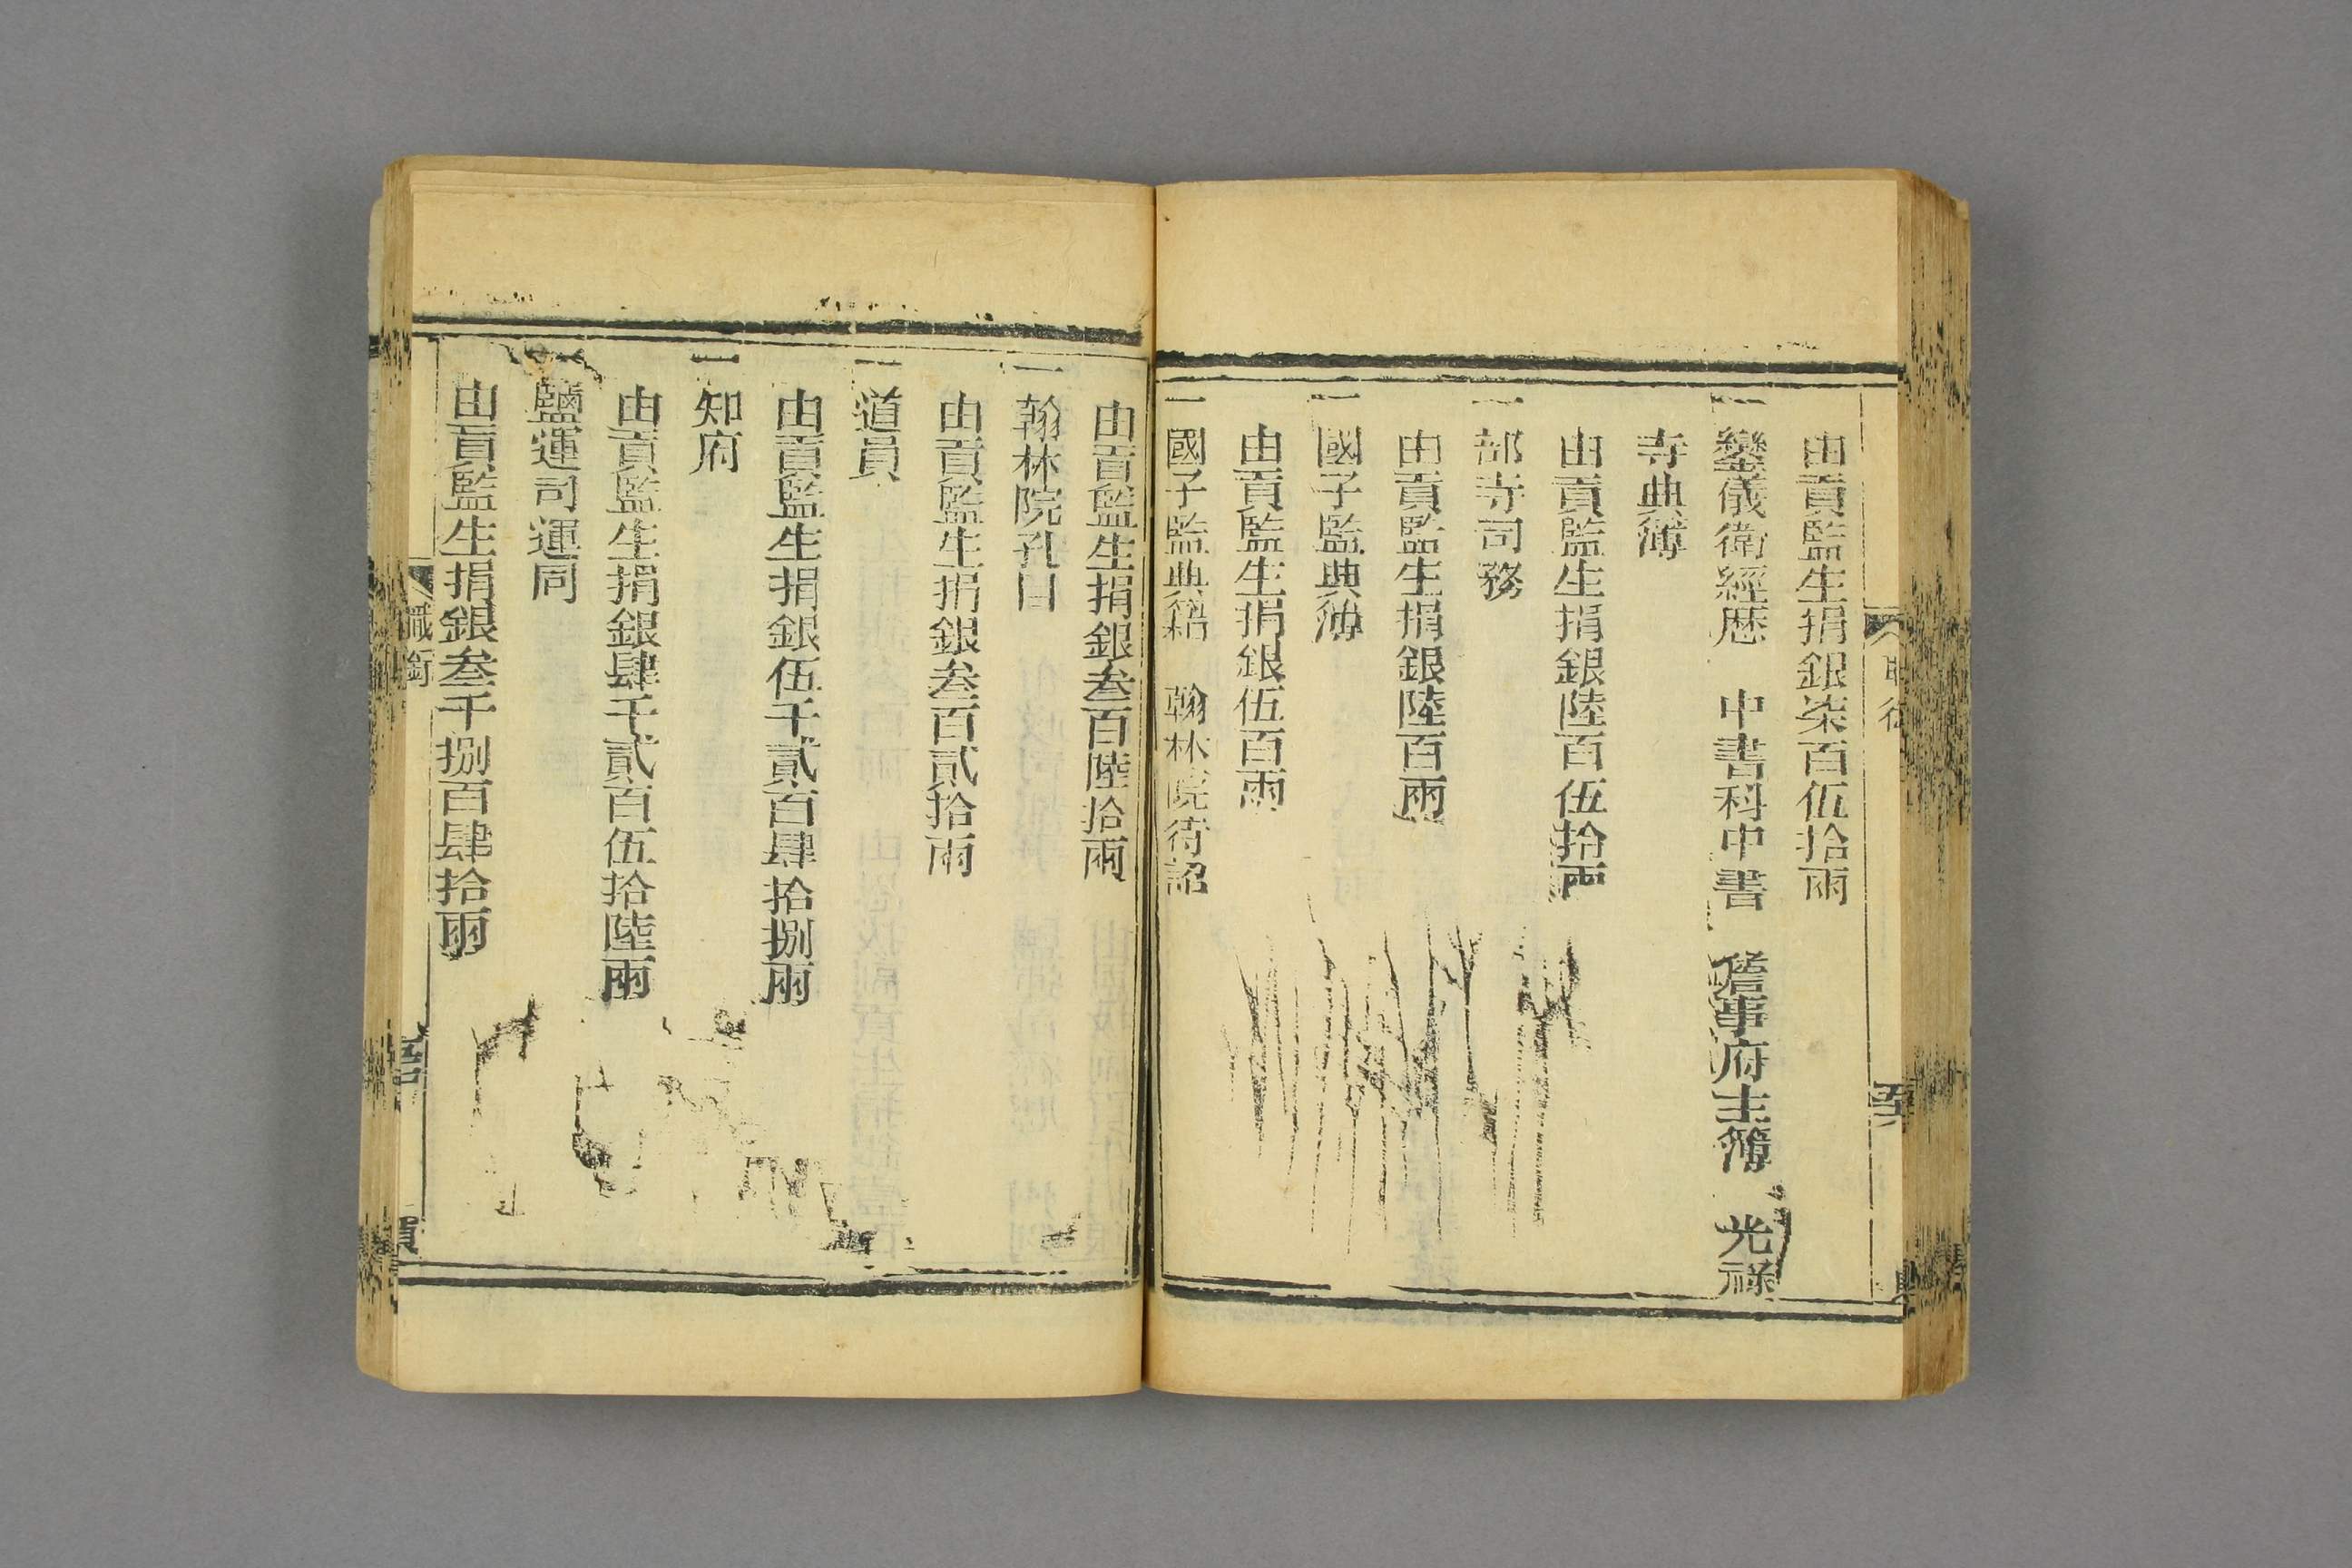 由貢監生捐銀柒百伍拾兩
一鑾儀衛經歷　中書科中書　詹事府主簿　光祿
寺典簿
由貢監生捐銀陸百伍拾兩
一部寺司務
由貢監生捐銀陸百兩
一國子監典簿
由貢監生捐銀伍百兩
一國子監典籍　翰林院待詔
由貢監生捐銀叁百陸拾兩
一翰林院孔目
由貢監生捐銀叁百貳拾兩
一道員
由貢監生捐銀伍千貳百肆拾捌兩
一知府
由貢監生捐銀肆千貳百伍拾陸兩
一鹽運司運同
由貢監生捐銀叁千捌百肆拾兩
職銜